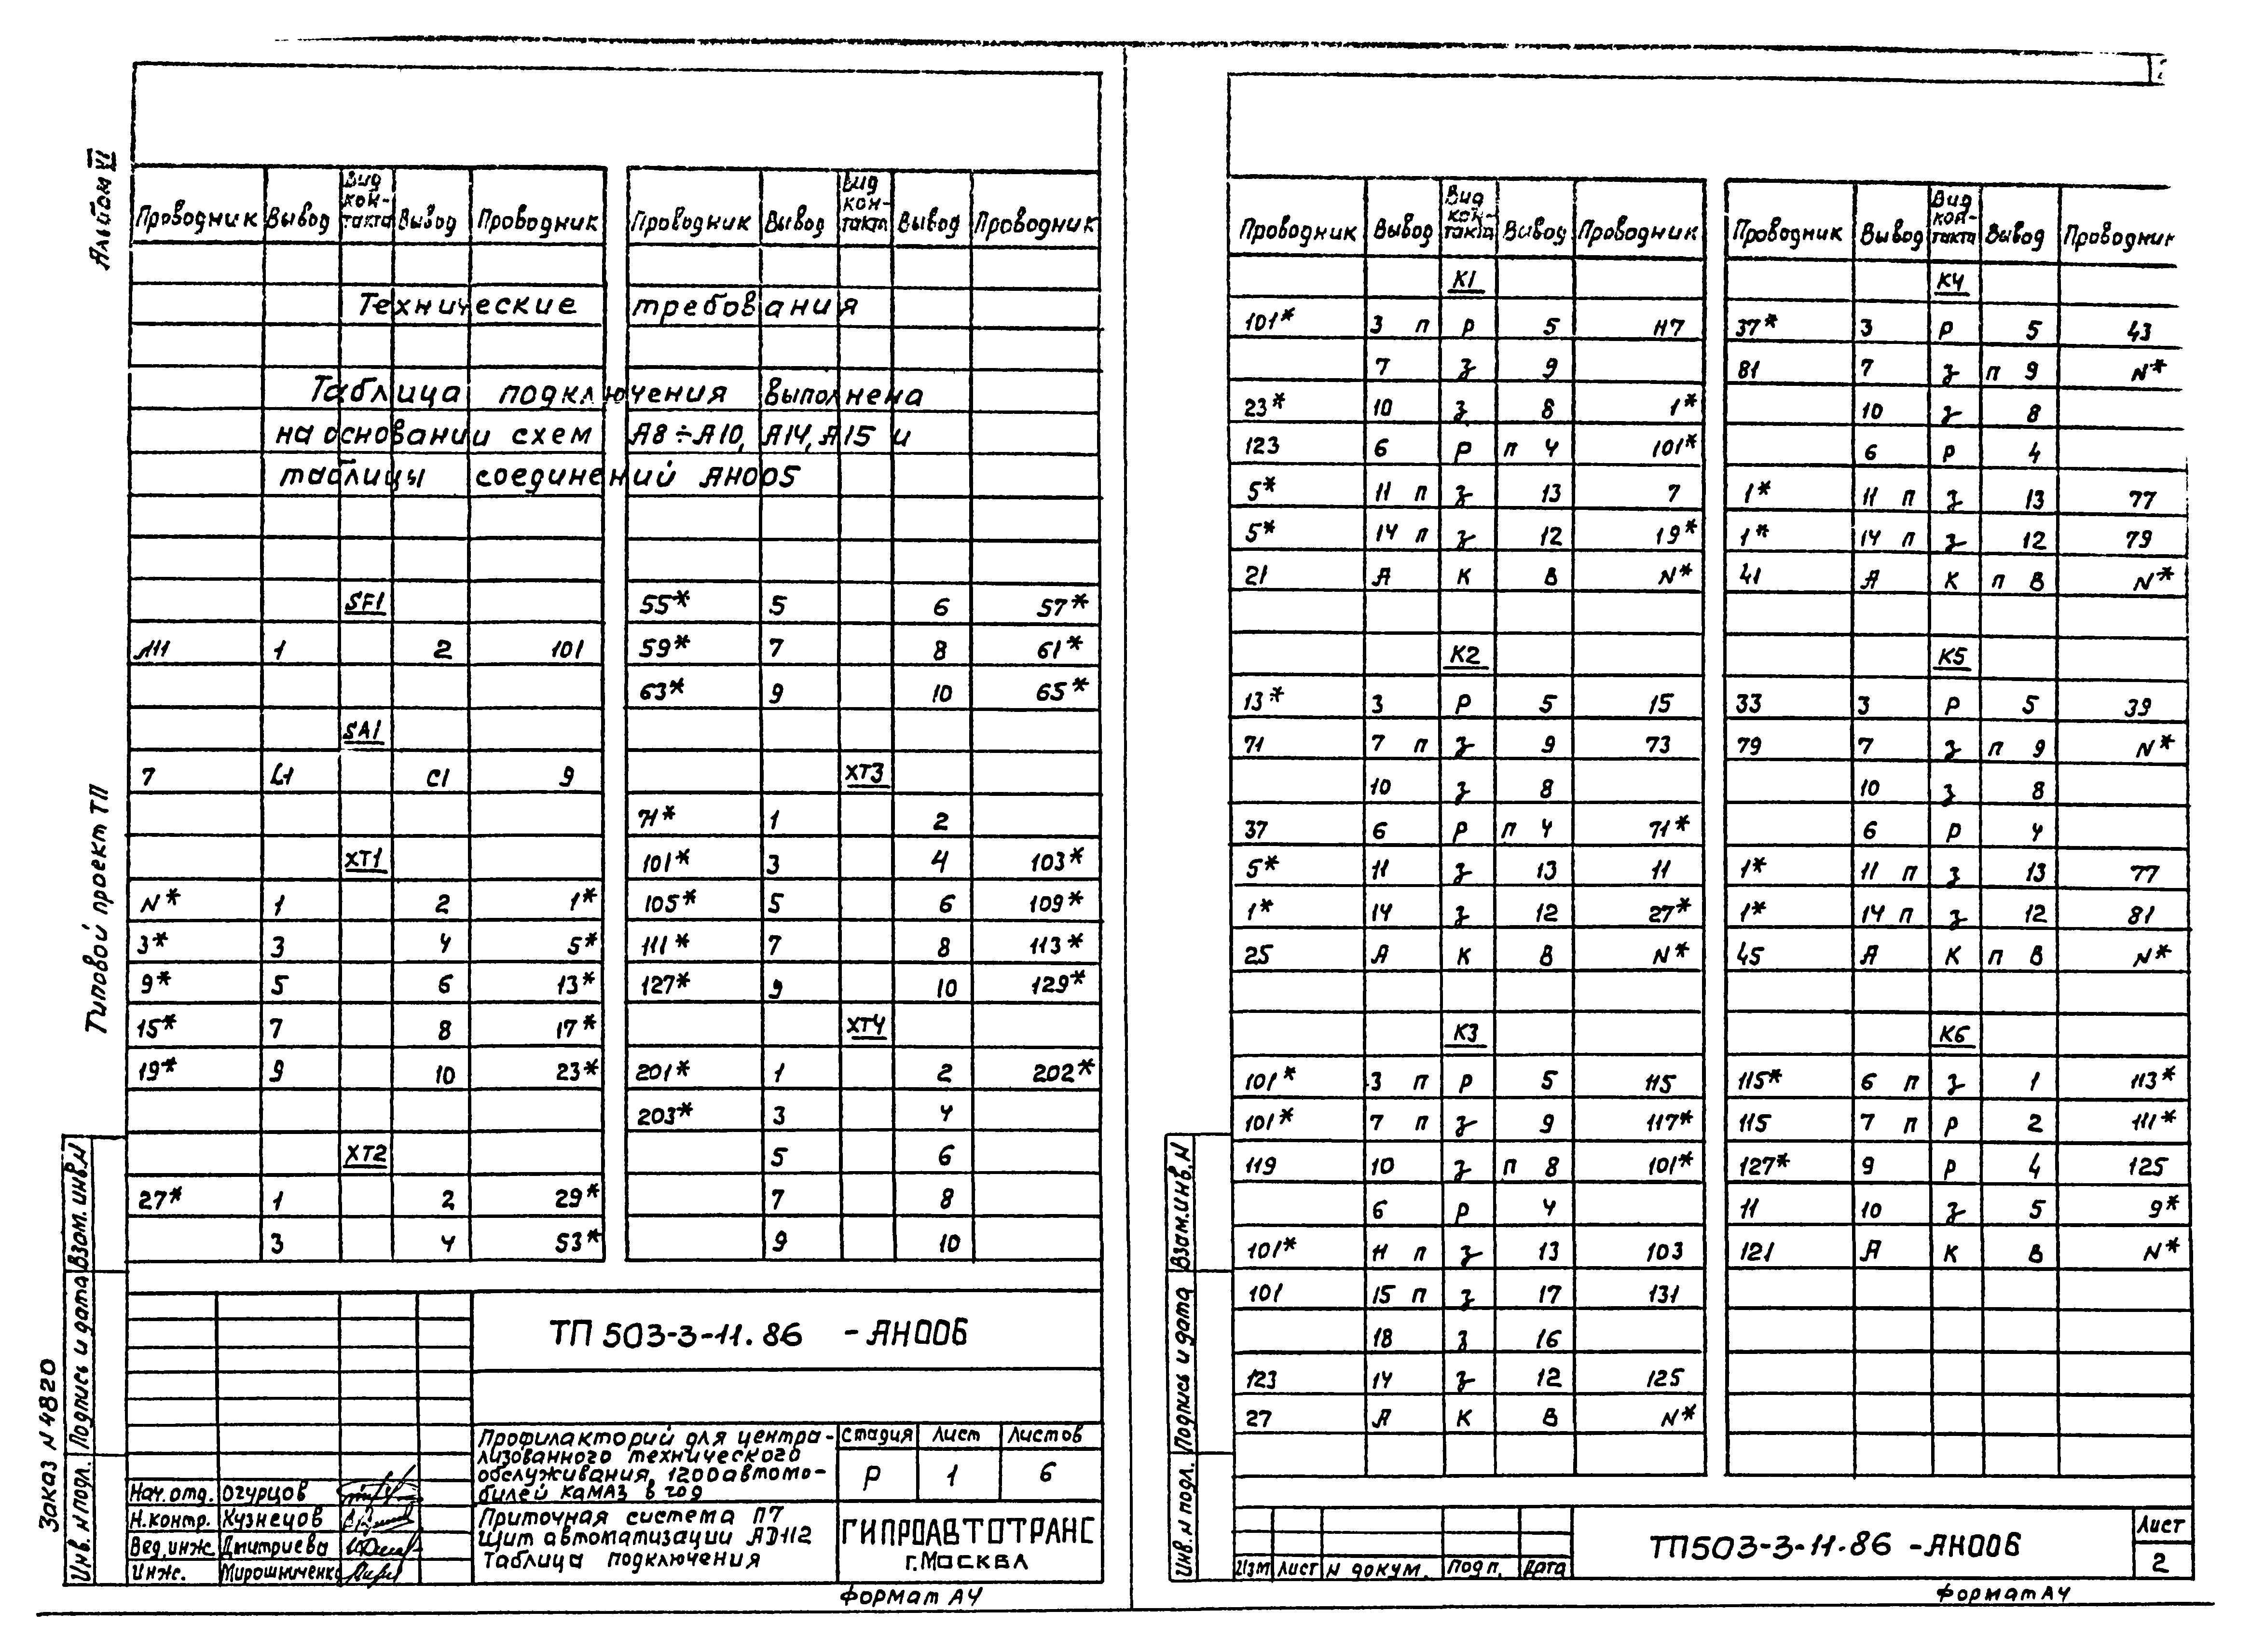 Альбом VI
Типовой проект ТП
Заказ N 4820
Инв. N подл. Подпись и дата Взам. инв. N
Проводник Вывод Вид контакта Вывод Проводник
Проводник Вывод Вид контакта Вывод Проводник
Технические требования
Таблица подключения выполнена
на основании схем А8÷А10, А14, А15 и
таблицы соединений АН005
SF1
Л11 1 2 101
SA1
7 L1 C1 9
XT1
N* 1 2 1*
3* 3 4 5*
9* 5 6 13*
15* 7 8 17*
19* 9 10 23*
XT2
27* 1 2 29*
3 4 53*
55* 5 6 57*
59* 7 8 61*
63* 9 10 65*
XT3
71* 1 2
101* 3 4 103*
105* 5 6 109*
111* 7 8 113*
127* 9 10 129*
XT4
201* 1 2 202*
203* 3 4
5 6
7 8
9 10
ТП 503-3-11.86 -АН006
Профилакторий для центра-
лизованного технического
обслуживания 1200 автомо-
билей КаМАЗ в год
Стадия Лист Листов
Р 1 6
Приточная система П7
Щит автоматизации АD112
Таблица подключения
ГИПРОАВТОТРАНС
г. Москва
Нач. отд. Огурцов
Н. контр. Кузнецов
Вед. инж. Дмитриева
Инж. Мирошниченко
Формат А4
Проводник Вывод Вид контакта Вывод Проводник
Проводник Вывод Вид контакта Вывод Проводник
K1
101* 3 п Р 5 117
7 З 9
23* 10 З 8 1*
123 6 Р п 4 101*
5* 11 п З 13 7
5* 14 п З 12 19*
21 А К В N*
K2
13* 3 Р 5 15
71 7 п З 9 73
10 З 8
37 6 Р п 4 71*
5* 11 З 13 11
1* 14 З 12 27*
25 А К В N*
K3
101* 3 п Р 5 115
101* 7 п З 9 117*
119 10 З п 8 101*
6 Р 4
101* 11 п З 13 103
101 15 п З 17 131
18 З 16
123 14 З 12 125
27 А К В N*
K4
37* 3 Р 5 43
81 7 З п 9 N*
10 З 8
6 Р 4
1* 11 п З 13 77
1* 14 п З 12 79
41 А К п В N*
K5
33 3 Р 5 39
79 7 З п 9 N*
10 З 8
6 Р 4
1* 11 п З 13 77
1* 14 п З 12 81
45 А К п В N*
K6
115* 6 п З 1 113*
115 7 п Р 2 111*
127* 9 Р 4 125
11 10 З 5 9*
121 А К В N*
Инв. N подл. Подпись и дата Взам. инв. N
Изм Лист N докум. Подп. Дата
ТП503-3-11.86 -АН006
Лист
2
Формат А4